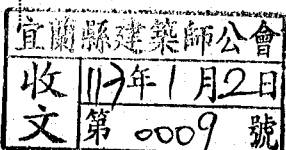 宜蘭縣建築師公會
收文
113年1月2日
第0009號